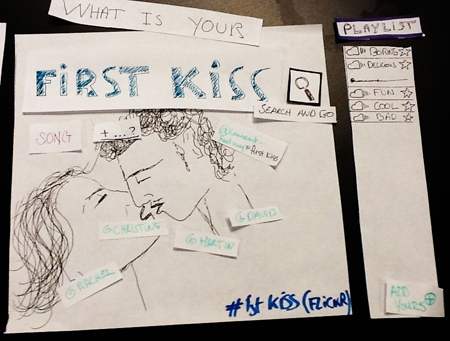 WHAT IS YOUR
FIRST KISS
SEARCH AND GO
SONG
+ ...?
#FIRST KISS
@CHRISTINE
@DAVID
@MARTIN
@RACHEL
#1st KISS (FLICKR)
PLAYLIST
BORING
DELICIOUS
FUN
COOL
SAD
ADD
YOURS